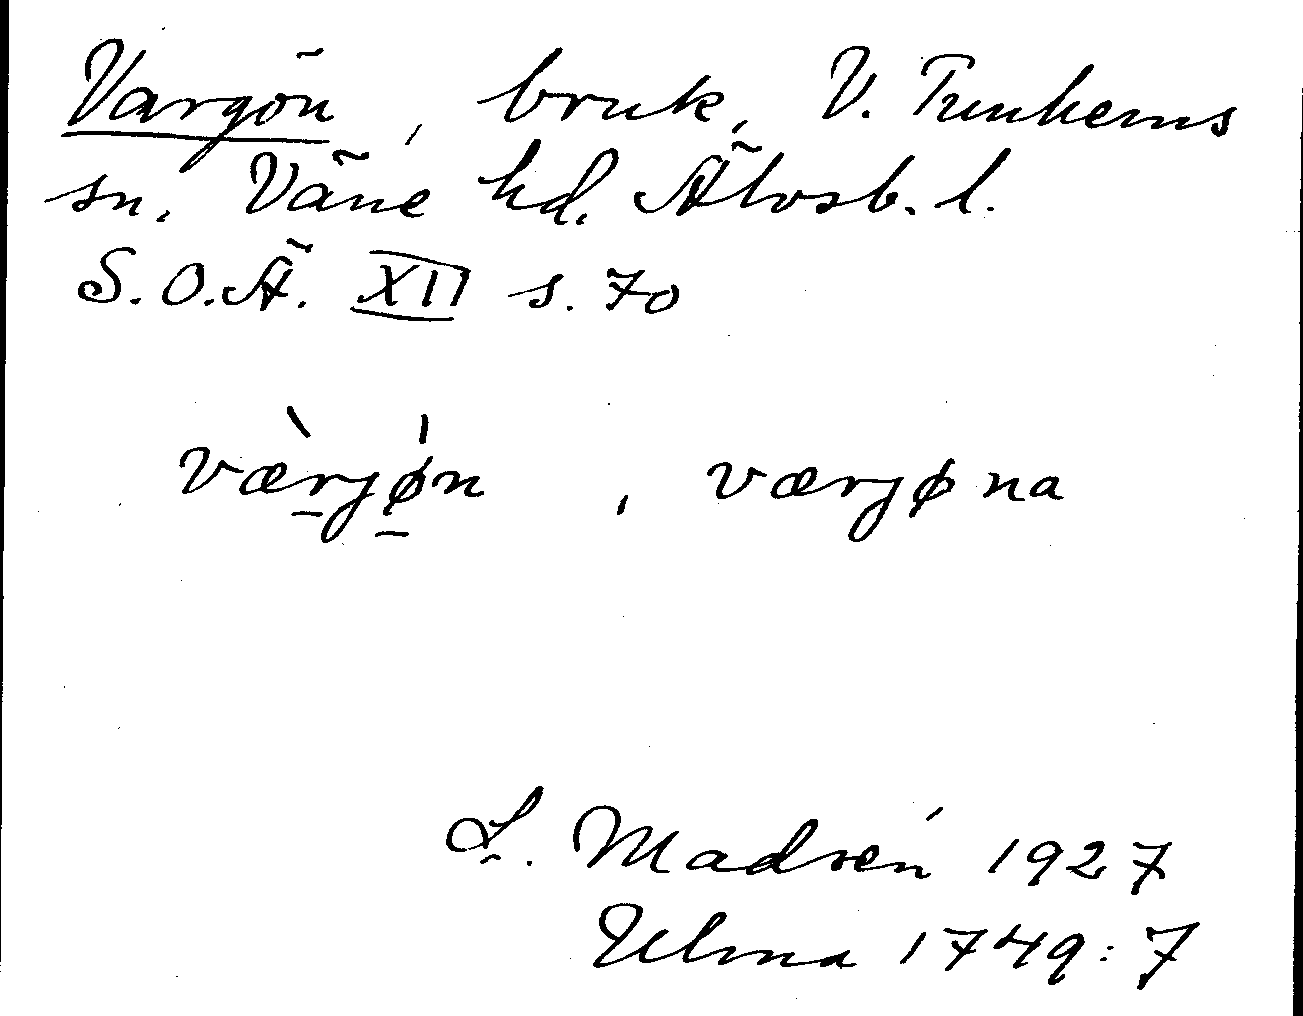 Vargön, bruk, V. Tunhems
sn. Väne hd. Älvsb. l.
S.O.Ä. XII s. 70
værjøn, værjøna
L. Madsén 1927
Ulma 1749:7